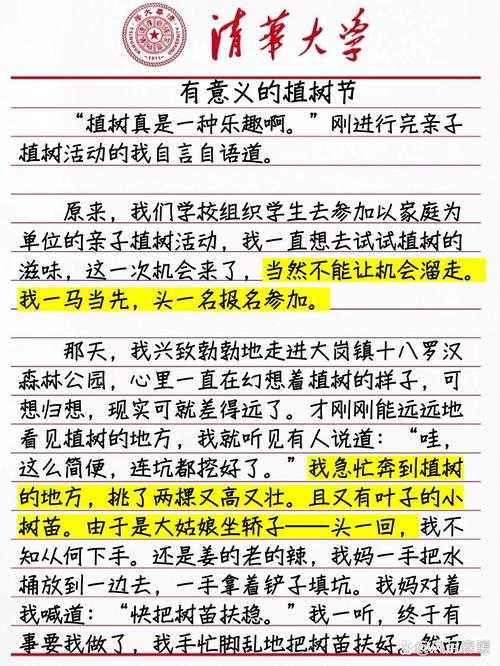 清华大学
1911
有意义的植树节
“植树真是一种乐趣啊。”刚进行完亲子
植树活动的我自言自语道。
原来，我们学校组织学生去参加以家庭为
单位的亲子植树活动，我一直想去试试植树的
滋味，这一次机会来了，当然不能让机会溜走。
我一马当先，头一名报名参加。
那天，我兴致勃勃地走进大岗镇十八罗汉
森林公园，心里一直在幻想着植树的样子，可
想归想，现实可就差得远了。才刚刚能远远地
看见植树的地方，我就听见有人说道：“哇，
这么简便，连坑都挖好了。”我急忙奔到植树
的地方，挑了两棵又高又壮。且又有叶子的小
树苗。由于是大姑娘坐轿子——头一回，我不
知从何下手。还是姜的老的辣，我妈一手把水
桶放到一边去，一手拿着铲子填坑。我妈对着
我喊道：“快把树苗扶稳。”我一听，终于有
事要我做了，我手忙脚乱地把树苗扶好。